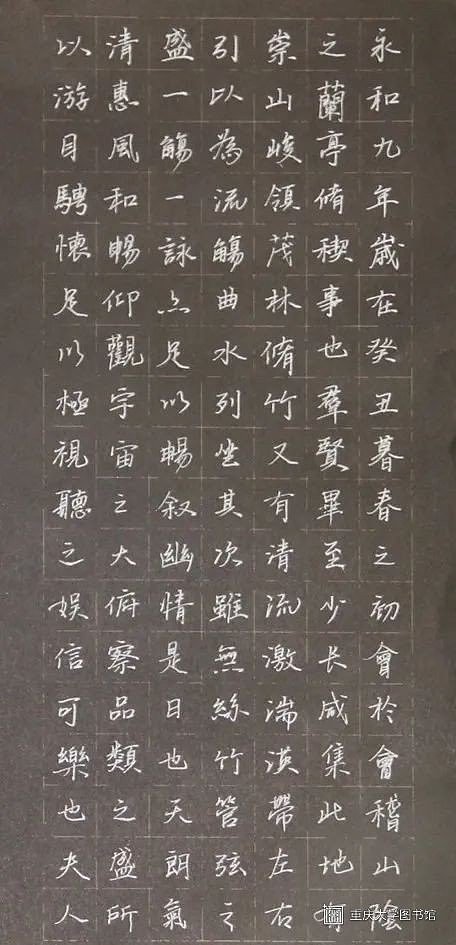 永和九年歲在癸丑暮春之初會於會稽山陰
之蘭亭脩稧事也羣賢畢至少長咸集此地有
崇山峻領茂林脩竹又有清流激湍暎帶左右
引以為流觴曲水列坐其次雖無絲竹管弦之
盛一觴一詠亦足以暢叙幽情是日也天朗氣
清惠風和暢仰觀宇宙之大俯察品類之盛所
以游目騁懷足以極視聽之娛信可樂也夫人
重庆大学图书馆